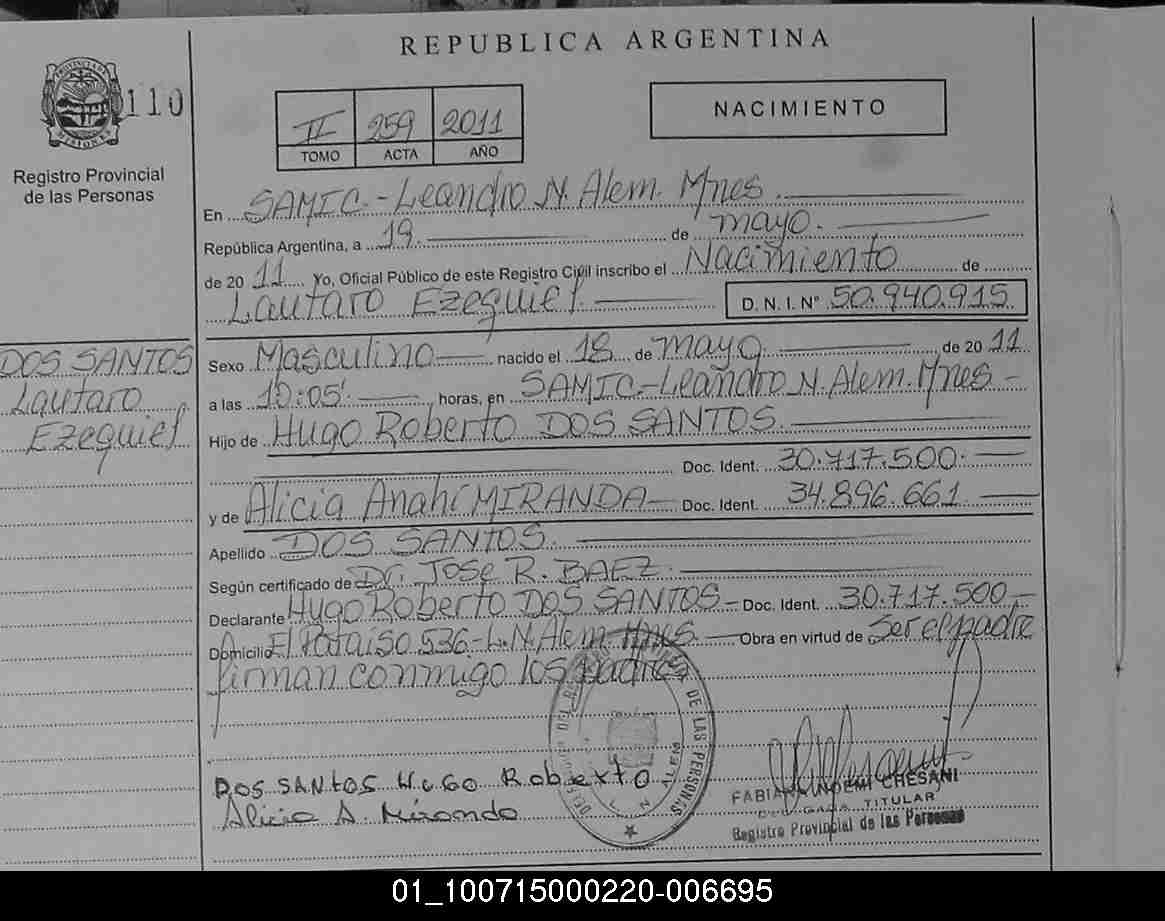 REPUBLICA ARGENTINA
PROVINCIA DE
MISIONES
110
Registro Provincial
de las Personas
II 259 2011
TOMO ACTA AÑO
NACIMIENTO
En SAMIC.-Leandro N. Alem. Mnes.
República Argentina, a 19 de mayo.
de 20 11 Yo, Oficial Público de este Registro Civil inscribo el Nacimiento de
Lautaro Ezequiel. D. N. I. Nº 50.940.915
DOS SANTOS
Lautaro
Ezequiel
Sexo Masculino nacido el 18 de mayo de 20 11
a las 10:05' horas, en SAMIC-Leandro N. Alem. Mnes-
Hijo de Hugo Roberto DOS SANTOS.
Doc. Ident. 30.717.500.
y de Alicia Anahí MIRANDA Doc. Ident. 34.896.661.
Apellido DOS SANTOS.
Según certificado de Dr. JOSE R. BAEZ.
Declarante Hugo Roberto DOS SANTOS- Doc. Ident. 30.717.500
Domicilio El Paraiso 536-L.N.Alem Mnes. Obra en virtud de Ser el padre
firman conmigo los padres
DOS SANTOS HUGO Roberto
Alicia A. Miranda
DE LAS PERSONAS
N. ALEM
FABIANA NOEMI CHESANI
DELEGADA TITULAR
Registro Provincial de las Personas
01_100715000220-006695